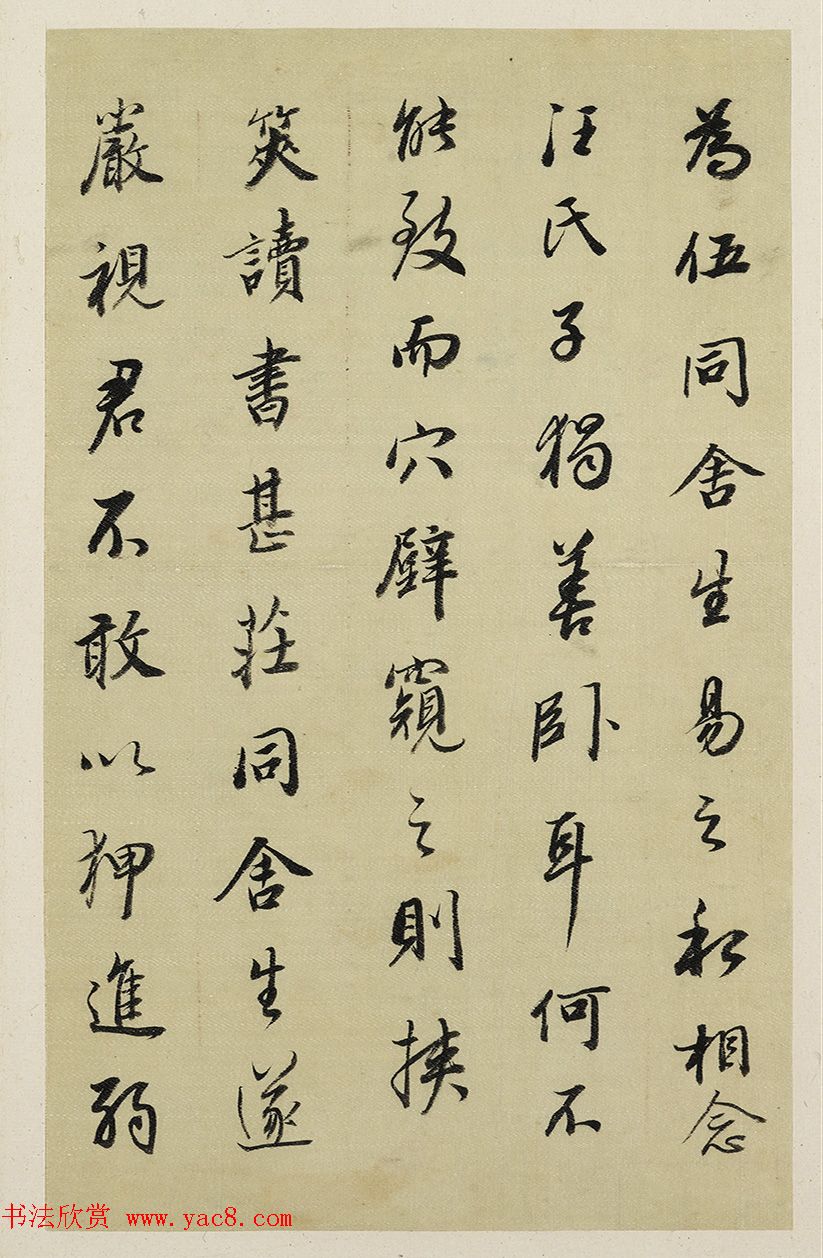 為伍同舍生易之私相念
汪氏子獨善卧耳何不
能致而穴壁窺之則挾
筴讀書甚莊同舍生遂
嚴視君不敢以狎進弱
书法欣赏 www.yac8.com